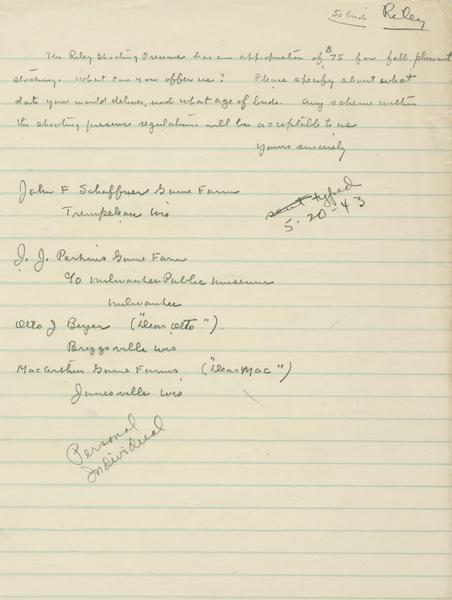 Riley
The Riley Shooting Preserve has an appropriation of $75 for fall pheasant
stocking. What can you offer us? Please specify about what
date you would deliver, and what age of birds. Any scheme within
the shooting preserve regulations will be acceptable to us
Yours sincerely
John F Schaffner Game Farm
Trempeleau Wis
sent typed
5-20-43
J. J. Perkins Game Farm
c/o Milwaukee Public Museum
Milwaukee
Otto J Beyer ("Dear Otto").
Briggsville Wis
MacArthur Game Farms ("Dear Mac")
Janesville Wis
Personal
Individual